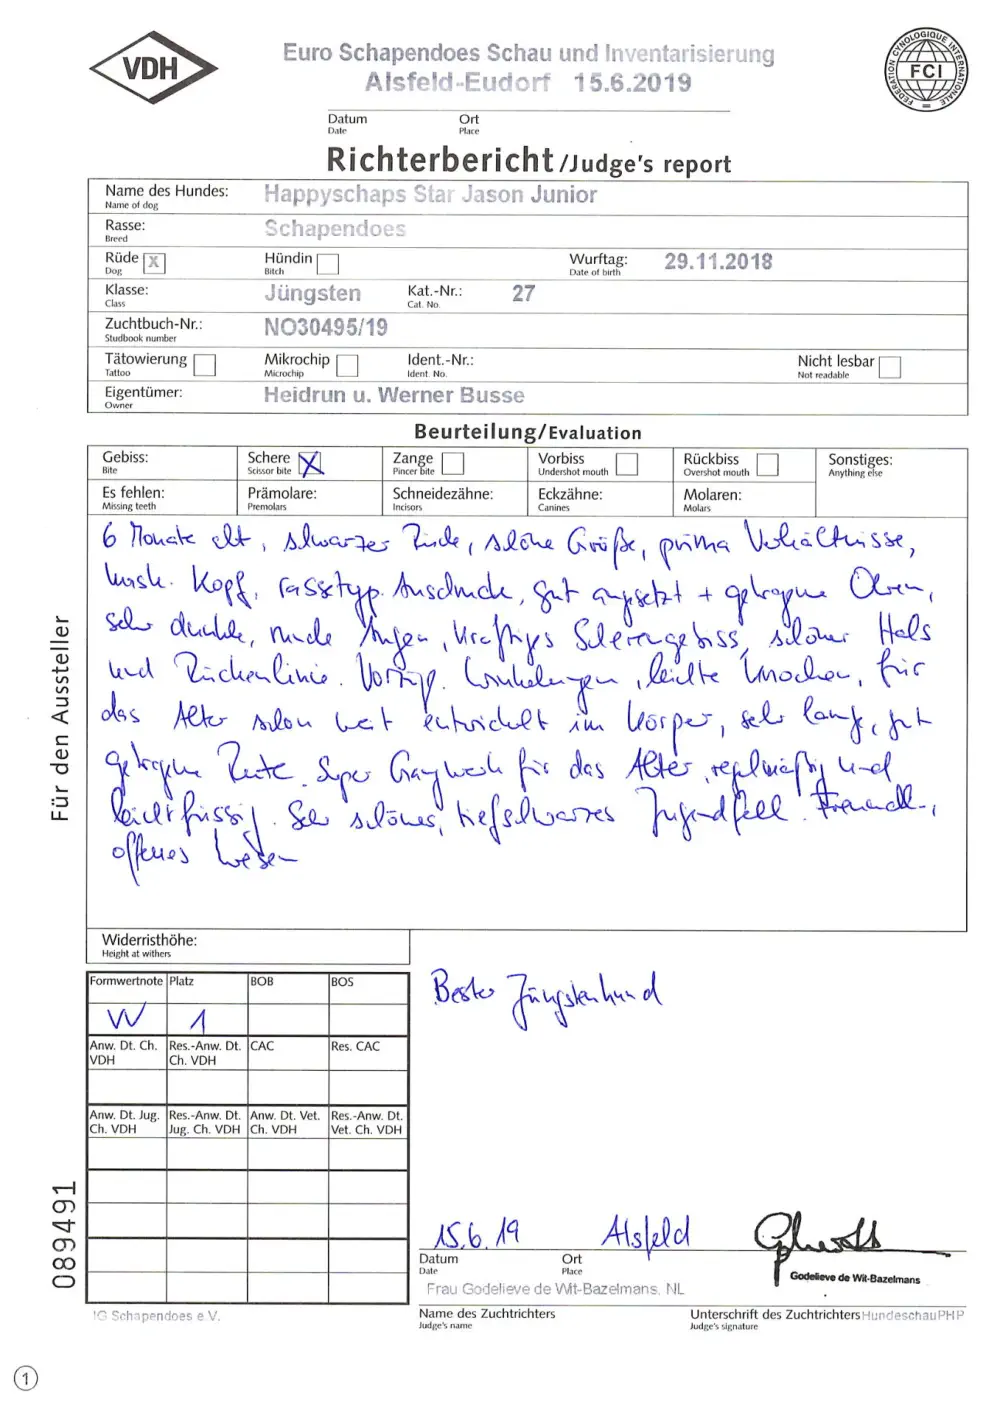 VDH
Euro Schapendoes Schau und Inventarisierung
Alsfeld-Eudorf 15.6.2019
FEDERATION CYNOLOGIQUE INTERNATIONALE
FCI
Datum Ort
Date Place
Richterbericht/Judge's report
Name des Hundes: Happyschaps Star Jason Junior
Name of dog
Rasse: Schapendoes
Breed
Rüde X Hündin Wurftag: 29.11.2018
Dog Bitch Date of birth
Klasse: Jüngsten Kat.-Nr.: 27
Class Cat. No.
Zuchtbuch-Nr.: NO30495/19
Studbook number
Tätowierung Mikrochip Ident.-Nr.: Nicht lesbar
Tattoo Microchip Ident. No. Not readable
Eigentümer: Heidrun u. Werner Busse
Owner
Beurteilung/Evaluation
Gebiss: Schere X Zange Vorbiss Rückbiss Sonstiges:
Bite Scissor bite Pincer bite Undershot mouth Overshot mouth Anything else
Es fehlen: Prämolare: Schneidezähne: Eckzähne: Molaren:
Missing teeth Premolars Incisors Canines Molars
6 Monate alt, schwarzer Rüde, schöne Größe, prima Verhältnisse,
mask. Kopf, rassetyp. Ausdruck, gut angesetzt + getragene Ohren,
sehr dunkle, runde Augen, kräftiges Scherengebiss, schöner Hals
und Rückenlinie. Vorzügl. Winkelungen, leichte Knochen, für
das Alter schon weit entwickelt im Körper, sehr lange, gut
getragene Rute. Super Gangwerk für das Alter, regelmäßig und
leichtfüssig. Sehr schönes, tiefschwarzes Jugendfell. Freundl.,
offenes Wesen
Für den Aussteller
Widerristhöhe:
Height at withers
Formwertnote Platz BOB BOS
VV 1
Bester Jüngstenhund
Anw. Dt. Ch. VDH Res.-Anw. Dt. Ch. VDH CAC Res. CAC
Anw. Dt. Jug. Ch. VDH Res.-Anw. Dt. Jug. Ch. VDH Anw. Dt. Vet. Ch. VDH Res.-Anw. Dt. Vet. Ch. VDH
089491
15.6.19 Alsfeld
Datum Ort
Date Place
Godelieve de Wit-Bazelmans
Frau Godelieve de Wit-Bazelmans, NL
IG Schapendoes e.V.
Name des Zuchtrichters Unterschrift des Zuchtrichters HundeschauPHP
Judge's name Judge's signature
1